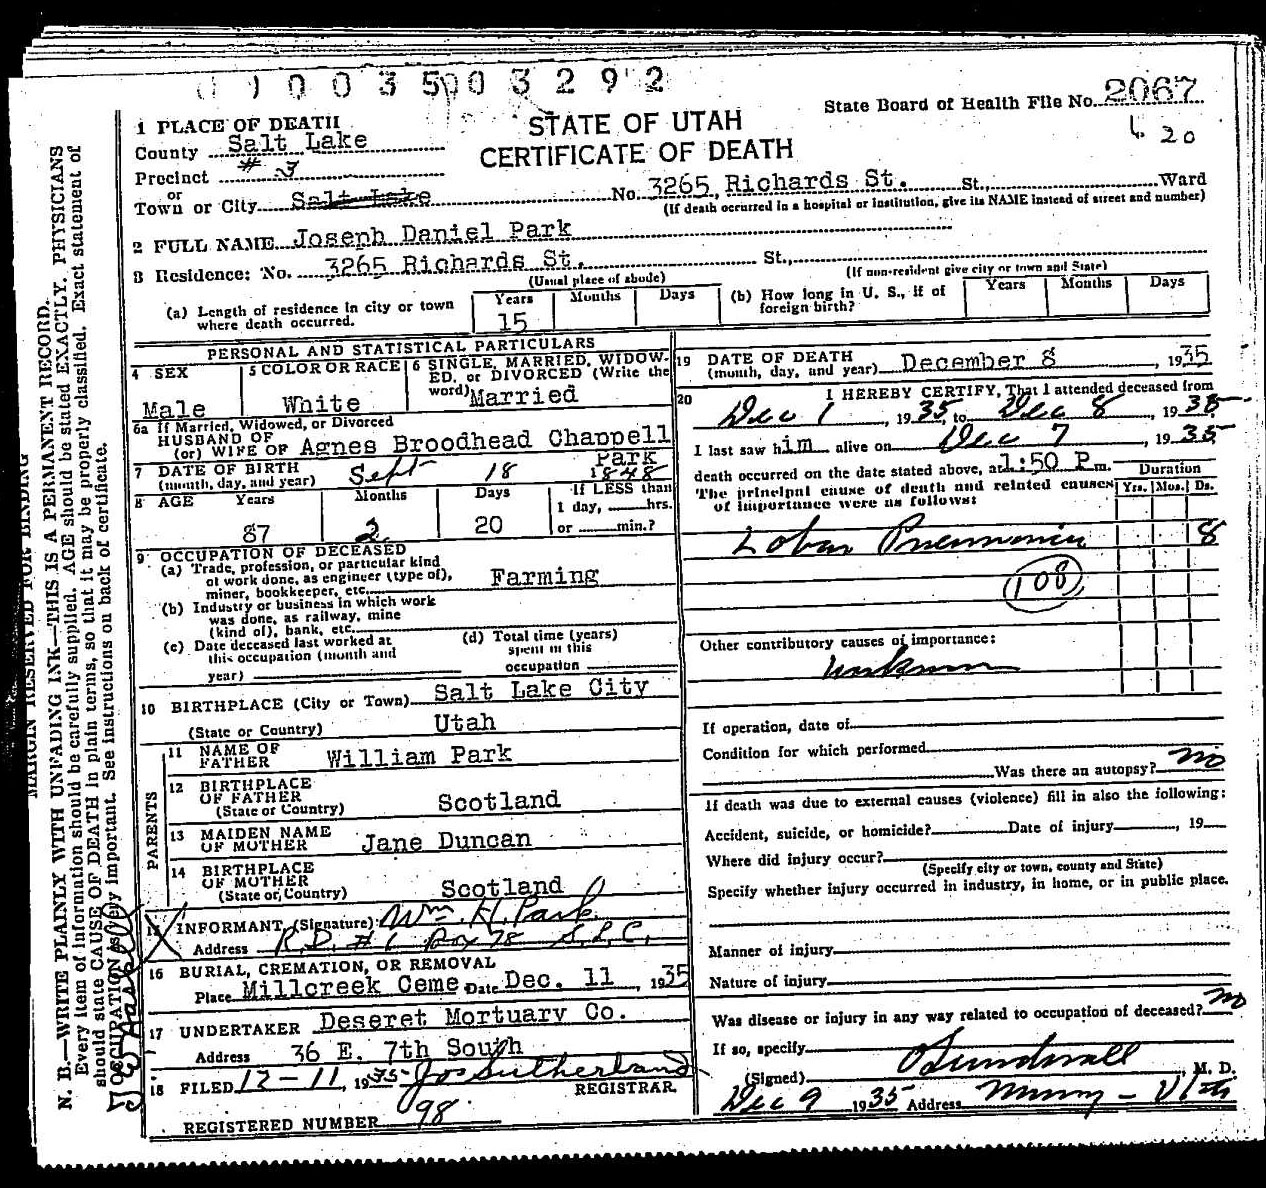 0 1 0 0 3 5 0 0 3 2 9 2
State Board of Health File No. 2067
20
STATE OF UTAH
CERTIFICATE OF DEATH
1 PLACE OF DEATH
County Salt Lake
Precinct # 3
or
Town or City Salt Lake No. 3265 Richards St. St., Ward
(If death occurred in a hospital or institution, give its NAME instead of street and number)
2 FULL NAME Joseph Daniel Park
3 Residence: No. 3265 Richards St. St.,
(Usual place of abode) (If non-resident give city or town and State)
(a) Length of residence in city or town where death occurred. Years 15 Months Days
(b) How long in U. S., if of foreign birth? Years Months Days
PERSONAL AND STATISTICAL PARTICULARS
4 SEX Male
5 COLOR OR RACE White
6 SINGLE, MARRIED, WIDOW-
ED, or DIVORCED (Write the
word) Married
6a If Married, Widowed, or Divorced
HUSBAND OF
(or) WIFE OF Agnes Broodhead Chappell
Park
7 DATE OF BIRTH
(month, day, and year) Sept 18 1848
8 AGE Years 87 Months 2 Days 20
If LESS than
1 day, hrs.
or min.?
9 OCCUPATION OF DECEASED
(a) Trade, profession, or particular kind
of work done, as engineer (type of),
miner, bookkeeper, etc. Farming
(b) Industry or business in which work
was done, as railway, mine
(kind of), bank, etc.
(c) Date deceased last worked at
this occupation (month and
year)
(d) Total time (years)
spent in this
occupation
10 BIRTHPLACE (City or Town) Salt Lake City
(State or Country) Utah
PARENTS
11 NAME OF
FATHER William Park
12 BIRTHPLACE
OF FATHER
(State or Country) Scotland
13 MAIDEN NAME
OF MOTHER Jane Duncan
14 BIRTHPLACE
OF MOTHER
(State or Country) Scotland
15 INFORMANT (Signature) Wm. H. Park
Address R.D. # 6 Box 78 S.L.C.
16 BURIAL, CREMATION, OR REMOVAL
Place Millcreek Ceme Date Dec. 11, 1935
17 UNDERTAKER Deseret Mortuary Co.
Address 36 E. 7th South
18 FILED 12-11, 1935 Jos Sutherland
REGISTRAR
REGISTERED NUMBER 98
19 DATE OF DEATH
(month, day, and year) December 8, 1935
20 I HEREBY CERTIFY, That I attended deceased from
Dec 1, 1935, to Dec 8, 1935
I last saw him alive on Dec 7, 1935
death occurred on the date stated above, at 1:50 P.m.
The principal cause of death and related causes
of importance were as follows:
Duration
Yrs. Mos. Ds.
Lobar Pneumonia 8
108
Other contributory causes of importance:
unknown
If operation, date of
Condition for which performed
Was there an autopsy? no
If death was due to external causes (violence) fill in also the following:
Accident, suicide, or homicide? Date of injury, 19
Where did injury occur?
(Specify city or town, county and State)
Specify whether injury occurred in industry, in home, or in public place.
Manner of injury
Nature of injury
Was disease or injury in any way related to occupation of deceased? no
If so, specify
(Signed) Sundwall, M. D.
Dec 9 1935 Address Murray - Utah
MARGIN RESERVED FOR BINDING
N. B.—WRITE PLAINLY WITH UNFADING INK—THIS IS A PERMANENT RECORD.
Every item of information should be carefully supplied. AGE should be stated EXACTLY. PHYSICIANS
should state CAUSE OF DEATH in plain terms, so that it may be properly classified. Exact statement of
OCCUPATION is very important. See instructions on back of certificate.